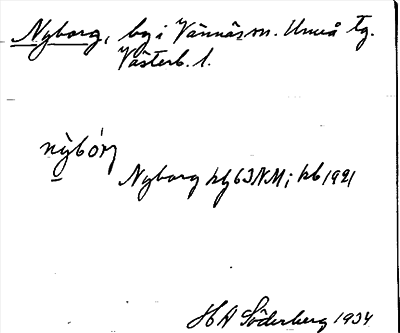 Nyborg, by i Vännäs sn. Umeå tg.
Västerb. l.
nỳbórj
Nyborg klj 63 NM; kb 1921
H A Söderberg 1934